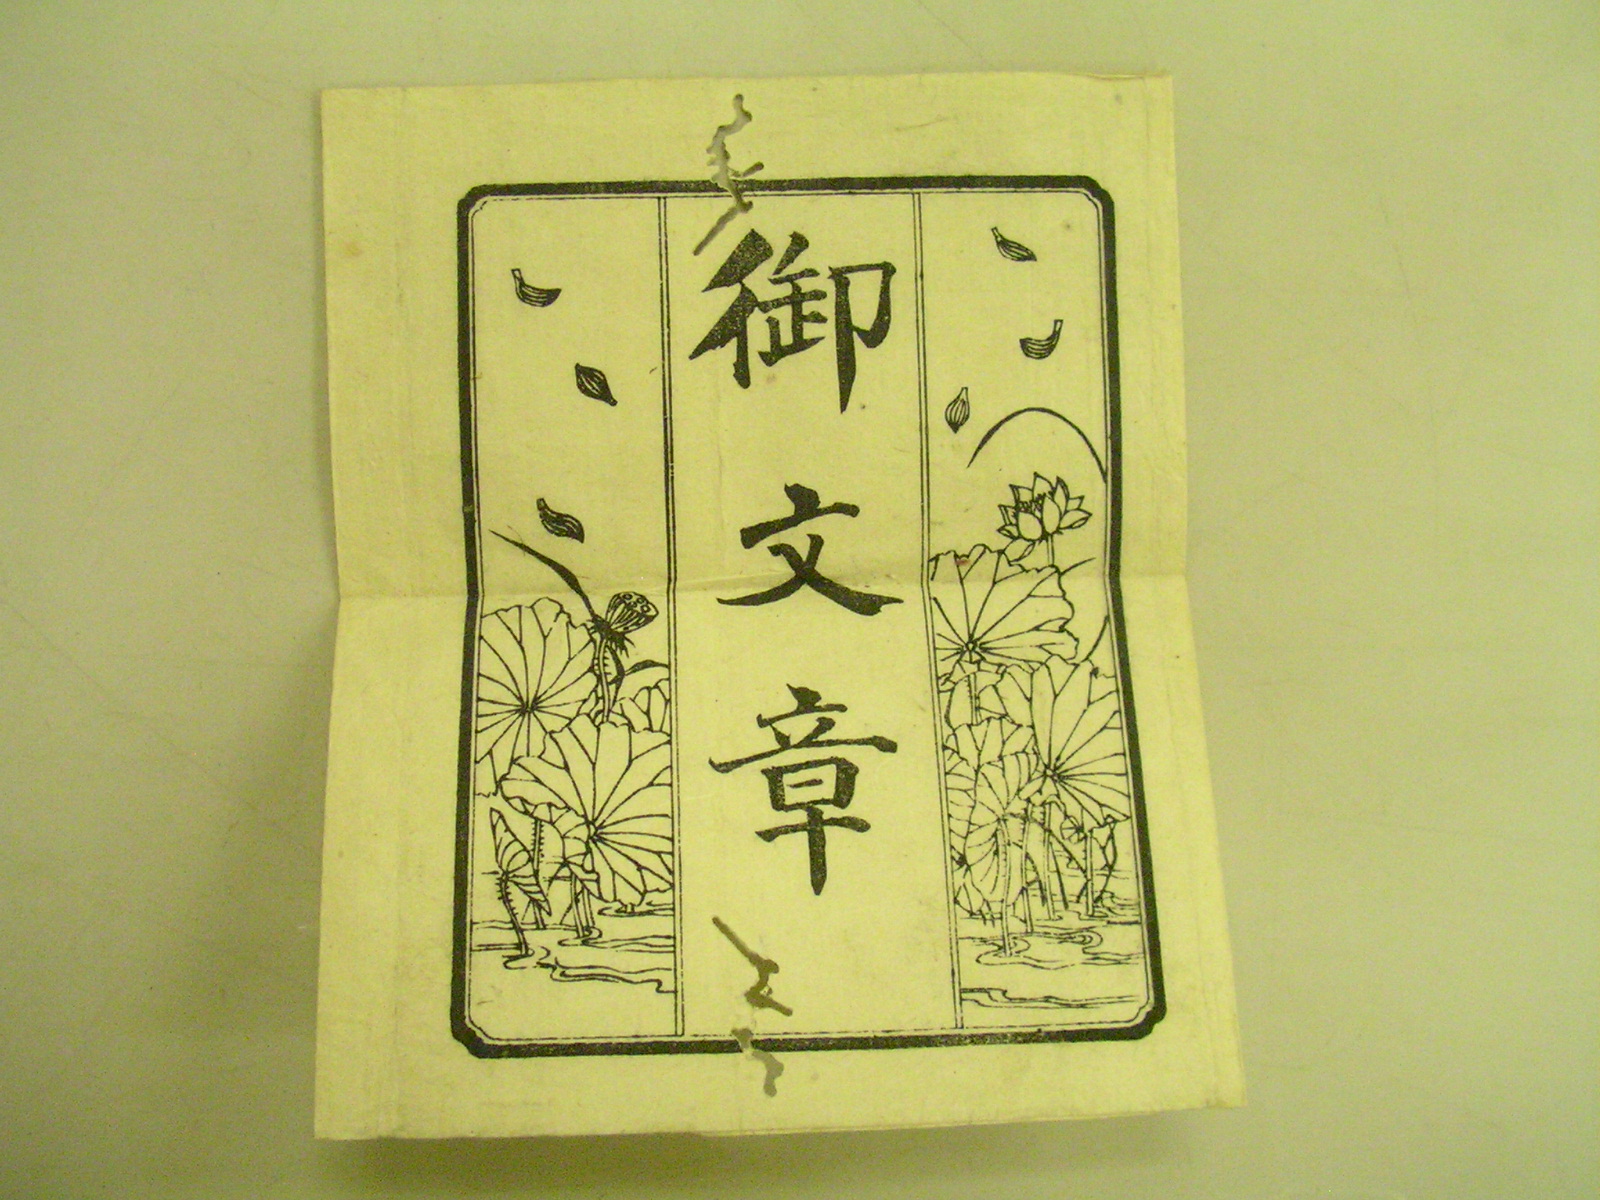 御文章